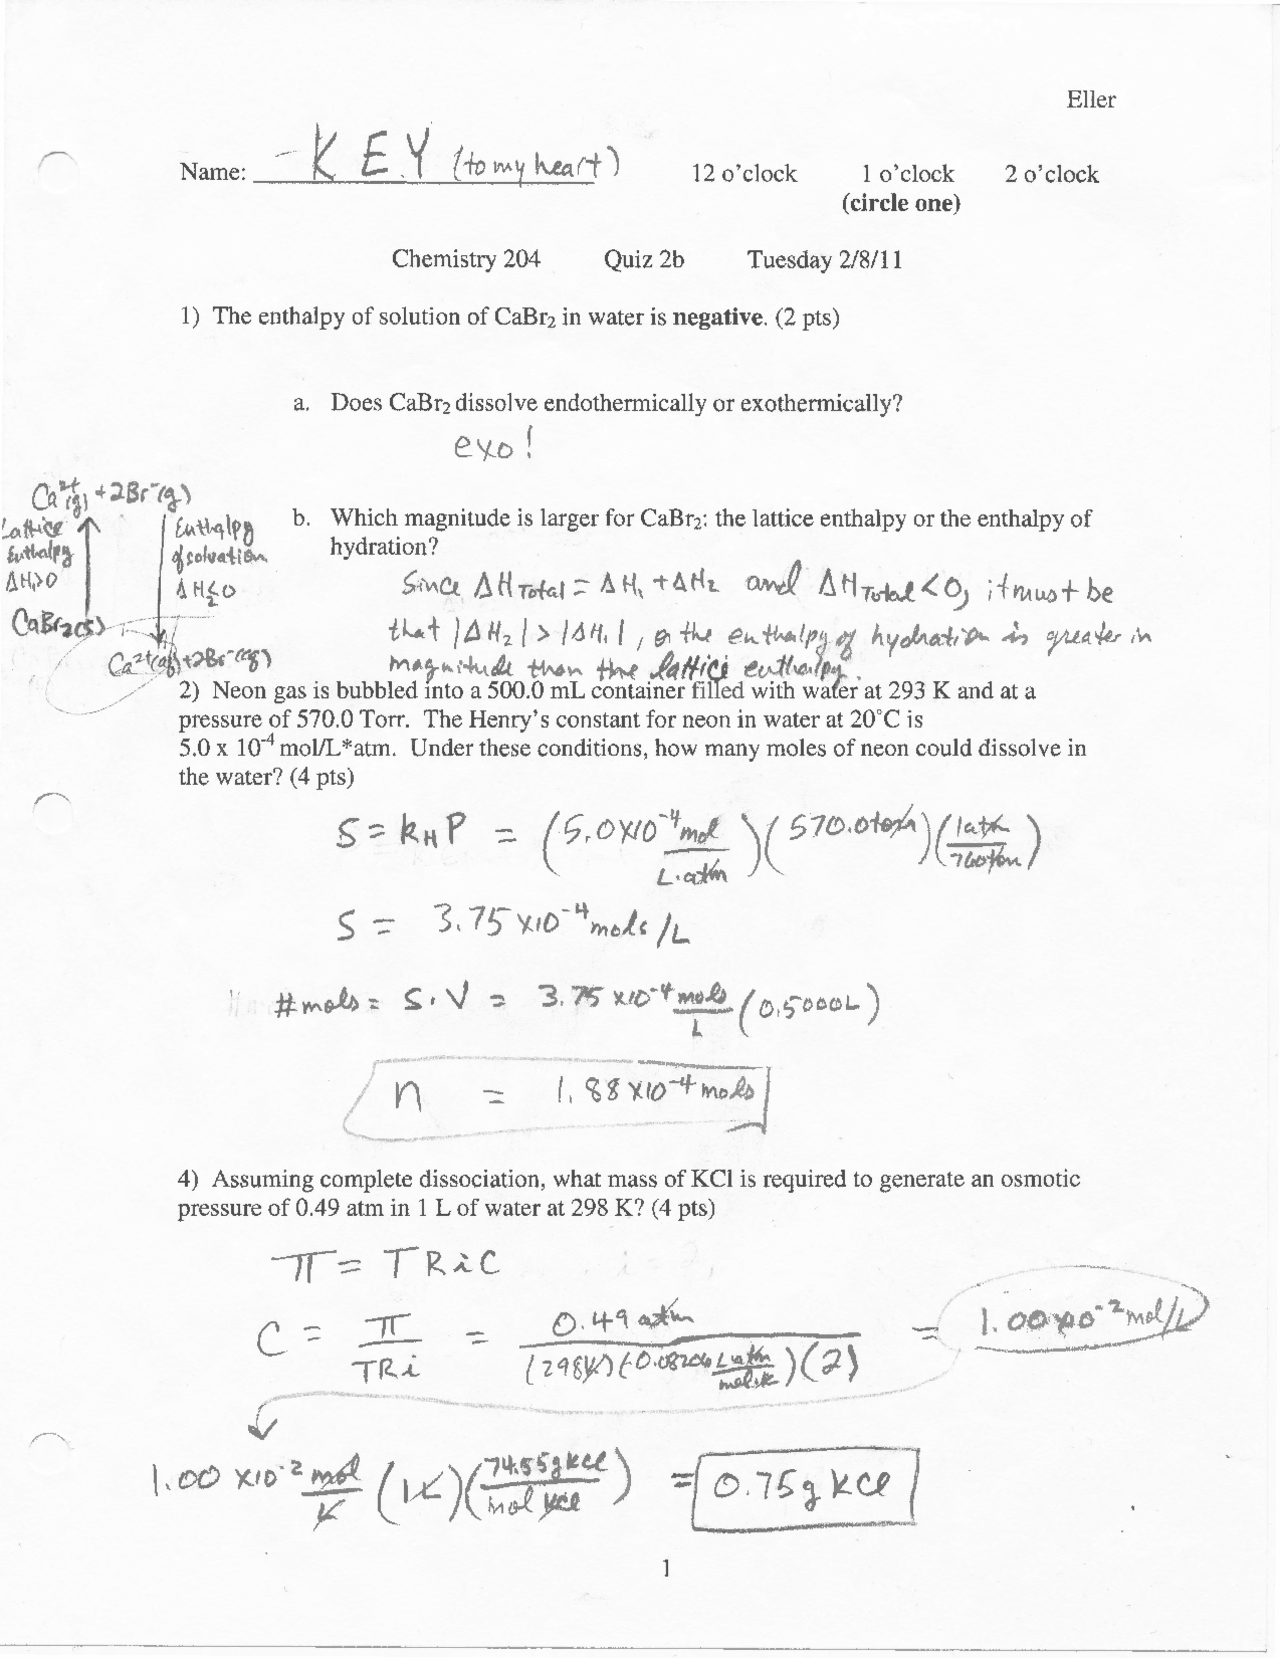 Eller
Name: KEY (to my heart) 12 o'clock 1 o'clock 2 o'clock
(circle one)
Chemistry 204 Quiz 2b Tuesday 2/8/11
1) The enthalpy of solution of CaBr₂ in water is negative. (2 pts)
a. Does CaBr₂ dissolve endothermically or exothermically?
exo!
Ca²⁺(g) + 2Br⁻(g)
Lattice Enthalpy ΔH₁>0
Enthalpy of solvation ΔH₂<0
CaBr₂(s)
Ca²⁺(aq) + 2Br⁻(aq)
b. Which magnitude is larger for CaBr₂: the lattice enthalpy or the enthalpy of
hydration?
Since ΔH Total = ΔH₁ + ΔH₂ and ΔH Total < 0, it must be
that |ΔH₂| > |ΔH₁|, so the enthalpy of hydration is greater in
magnitude than the lattice enthalpy.
2) Neon gas is bubbled into a 500.0 mL container filled with water at 293 K and at a
pressure of 570.0 Torr. The Henry's constant for neon in water at 20°C is
5.0 x 10⁻⁴ mol/L*atm. Under these conditions, how many moles of neon could dissolve in
the water? (4 pts)
S = kHP = (5.0x10⁻⁴ mol / L·atm)(570.0 torr)(1 atm / 760 torr)
S = 3.75 x10⁻⁴ mols/L
# mols = S·V = 3.75 x10⁻⁴ mols/L (0.5000L)
n = 1.88x10⁻⁴ mols
4) Assuming complete dissociation, what mass of KCl is required to generate an osmotic
pressure of 0.49 atm in 1 L of water at 298 K? (4 pts)
π = TRiC
C = π / TRi = 0.49 atm / (298K)(0.08206 L atm / mol·K)(2) = 1.00x10⁻² mol/L
1.00 x10⁻² mol/L (1L)(74.55g KCl / mol KCl) = 0.75g KCl
1